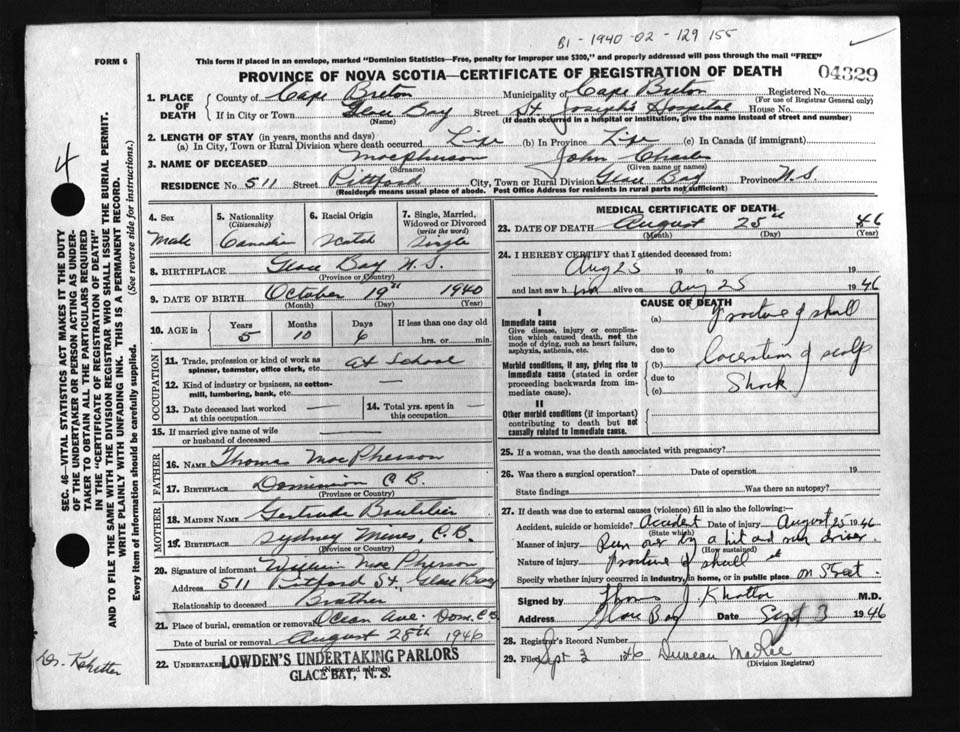 B1-1940-02-129155
FORM 6
This form if placed in an envelope, marked "Dominion Statistics—Free, penalty for improper use $300," and properly addressed will pass through the mail "FREE"
PROVINCE OF NOVA SCOTIA—CERTIFICATE OF REGISTRATION OF DEATH
04329
1. PLACE OF DEATH
County of Cape Breton Municipality of Cape Breton Registered No.
(For use of Registrar General only)
If in City or Town Glace Bay Street St. Joseph's Hospital House No.
(Name) (If death occurred in a hospital or institution, give the name instead of street and number)
2. LENGTH OF STAY (in years, months and days)
(a) In City, Town or Rural Division where death occurred Life (b) In Province Life (c) In Canada (if immigrant)
3. NAME OF DECEASED MacPherson John Charles
(Surname) (Given name or names)
RESIDENCE No. 511 Street Pittford City, Town or Rural Division Glace Bay Province N.S.
(Residence means usual place of abode. Post Office Address for residents in rural parts not sufficient)
4. Sex
Male
5. Nationality
(Citizenship)
Canadian
6. Racial Origin
Scotch
7. Single, Married, Widowed or Divorced
(write the word)
Single
8. BIRTHPLACE Glace Bay N.S.
(Province or Country)
9. DATE OF BIRTH October 19th 1940
(Month) (Day) (Year)
10. AGE in
Years Months Days If less than one day old
5 10 6 hrs. or min.
OCCUPATION
11. Trade, profession or kind of work as spinner, teamster, office clerk, etc. at School
12. Kind of industry or business, as cotton-mill, lumbering, bank, etc. —
13. Date deceased last worked at this occupation —
14. Total yrs. spent in this occupation —
15. If married give name of wife or husband of deceased —
FATHER
16. NAME Thomas MacPherson
17. BIRTHPLACE Dominion C B.
(Province or Country)
MOTHER
18. MAIDEN NAME Gertrude Boutilier
19. BIRTHPLACE Sydney Mines, C.B.
(Province or Country)
20. Signature of informant MacPherson
Address 511 Pittford St. Glace Bay
Relationship to deceased Brother
21. Place of burial, cremation or removal Ocean Ave. Dom. C B
Date of burial or removal August 28th 1946
22. UNDERTAKER LOWDEN'S UNDERTAKING PARLORS
(Name and address)
GLACE BAY, N. S.
MEDICAL CERTIFICATE OF DEATH
23. DATE OF DEATH August 25th 1946
(Month) (Day) (Year)
24. I HEREBY CERTIFY that I attended deceased from:
Aug 25 19 to 19
and last saw him alive on Aug 25 1946
CAUSE OF DEATH
I
Immediate cause
Give disease, injury or complication which caused death, not the mode of dying, such as heart failure, asphyxia, asthenia, etc.
(a) Fracture of skull
due to
Morbid conditions, if any, giving rise to immediate cause (stated in order proceeding backwards from immediate cause).
(b) laceration of scalp
due to
(c) Shock
II
Other morbid conditions (if important) contributing to death but not causally related to immediate cause.
25. If a woman, was the death associated with pregnancy?
26. Was there a surgical operation? Date of operation 19
State findings Was there an autopsy?
27. If death was due to external causes (violence) fill in also the following:-
Accident, suicide or homicide? Accident Date of injury August 25 1946
(State which)
Manner of injury Run over by a hit and run driver.
(How sustained)
Nature of injury Fracture of skull
Specify whether injury occurred in industry, in home, or in public place on Street.
Signed by Thomas J. Khattar M.D.
Address Glace Bay Date Sept 3 1946
28. Registrar's Record Number
29. Filed Sept 3 1946 Duncan MacRae
(Division Registrar)
SEC. 46—VITAL STATISTICS ACT MAKES IT THE DUTY
OF THE UNDERTAKER OR PERSON ACTING AS UNDER-
TAKER TO OBTAIN ALL THE PARTICULARS REQUIRED
IN THE "CERTIFICATE OF REGISTRATION OF DEATH"
AND TO FILE THE SAME WITH THE DIVISION REGISTRAR WHO SHALL ISSUE THE BURIAL PERMIT.
WRITE PLAINLY WITH UNFADING INK. THIS IS A PERMANENT RECORD.
Every item of information should be carefully supplied. (See reverse side for instructions.)
4
Dr. Khatter